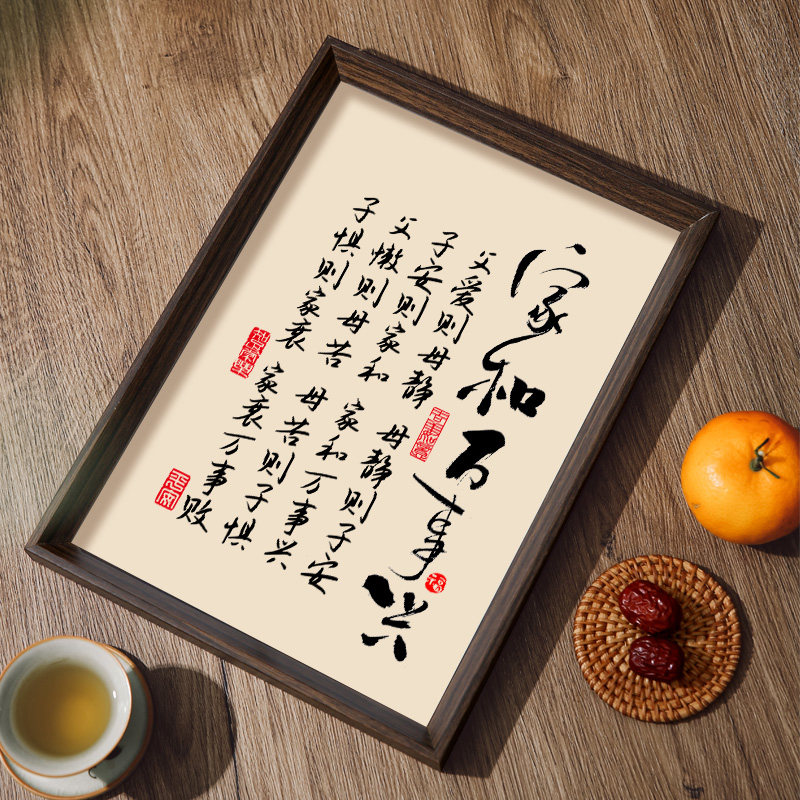 家和万事兴
父爱则母静 母静则子安
子安则家和 家和万事兴
父懒则母苦 母苦则子惧
子惧则家衰 家衰万事败
福